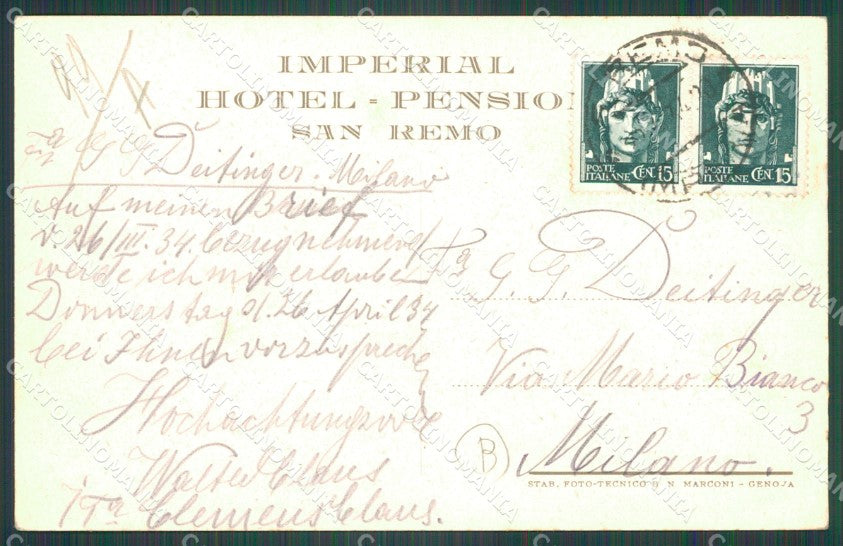 IMPERIAL
HOTEL - PENSION
SAN REMO
Fa G G Deitinger. Milano
Auf meinen Brief
v. 26/III. 34. bezugnehmend
werde ich mir erlauben
Donnerstag d. 26 April 34
bei Ihnen vorzusprechen
Hochachtungsvoll
Walter Claus
i/Fa Clemens Claus.
POSTE ITALIANE CEN. 15
POSTE ITALIANE CEN. 15
Fa
G. G. Deitinger
Via Mario Bianco
3
B
Milano.
STAB. FOTO-TECNICO G. N. MARCONI - GENOVA
CARTOLINOMANIA